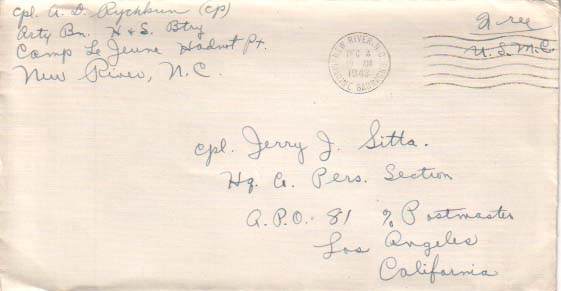 Cpl. A. D. Rychbun (cp)
Arty Bn. H & S. Btry
Camp Le Jeune Hadnot Pt.
New River, N.C.
NEW RIVER, N.C.
DEC 4
1942
MARINE BARRACKS
Free
U.S.M.C.
Cpl. Jerry J. Sitta.
Hq. Co. Pers. Section
A.P.O. 81 % Postmaster
Los Angeles
California